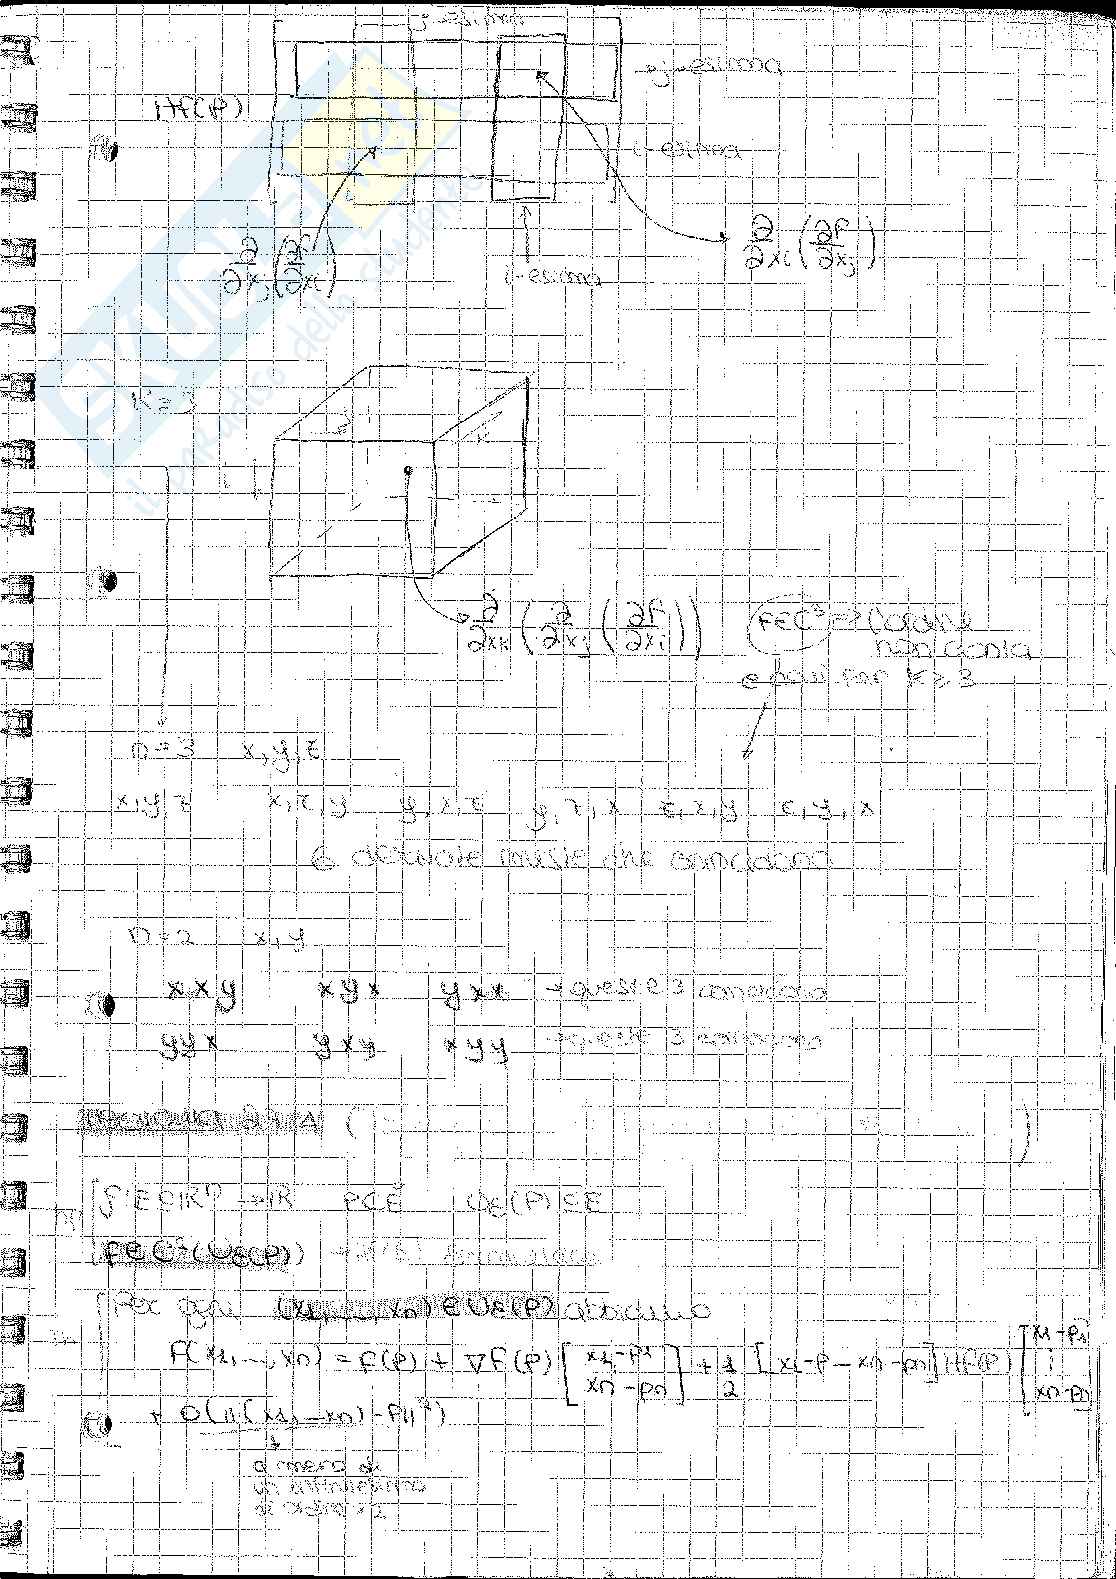 j-esima
j-esima
Hf(P)
i-esima
∂/∂xj (∂f/∂xi)
i-esima
∂/∂xi (∂f/∂xj)
SKUOLA.net
il paradiso dello studente
K=3
∂/∂xk (∂/∂xj (∂f/∂xi))
f∈C³ => l'ordine
non conta
e puoi far K≥3
n=3 x,y,z
x,y,z x,z,y y,x,z y,z,x z,x,y z,y,x
6 derivate miste che coincidono
n=2 x,y
xxy xyx yxx → queste 3 coincidono
yyx yxy xyy → queste 3 coincidono
f: E⊆ℝⁿ → ℝ P∈E̊ Uε(P)⊆E
(Uε(P))
Per ogni (x1,...,xn)∈Uε(P) abbiamo
f(x1,...,xn) = f(P) + ∇f(P) [x1-p1 xn-pn] + 1/2 [x1-p - xn-pn] Hf(P) [x1-p1 ⋮ xn-pn]
+ o(||(x1,-xn)-P||²)
a meno di
un infinitesimo
di